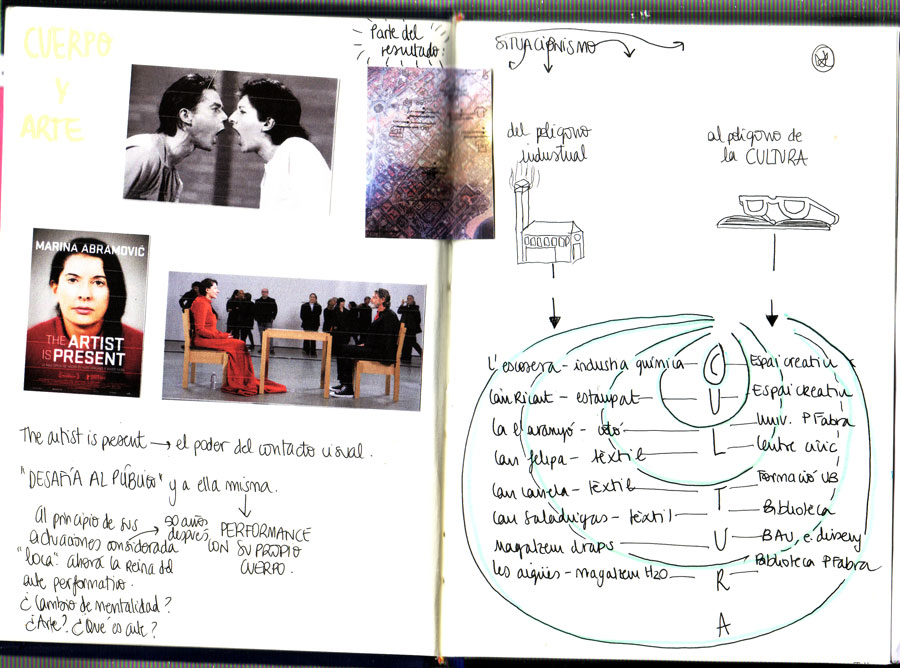 CUERPO
Y
ARTE
Parte del
resultado:
MARINA ABRAMOVIĆ
THE
ARTIST
IS PRESENT
The artist is present → el poder del contacto visual.
"DESAFÍA AL PÚBLICO" y a ella misma.
Al principio de sus
actuaciones considerada
"loca" ahora la reina del
arte performativo.
¿Cambio de mentalidad?
¿Arte? ¿Qué es arte?
→ 30 años
después
PERFORMANCE
CON SU PROPIO
CUERPO.
SITUACIONISMO
del polígono
industrial
al polígono de
la CULTURA
L'escosera - industria química — C — Espai creatiu
Can Ricart - estampat — U — Espai creatiu
Ca l'aranyó - cotó — L — Univ. P Fabra
Can felipa - tèxtil — Centre cívic
Can canela - tèxtil — T — Formació UB
Can Saladrigas - tèxtil — Biblioteca
Magatzem draps — U — BAU, e. disseny
Les aigües - magatzem H2O — R — Biblioteca P Fabra
A